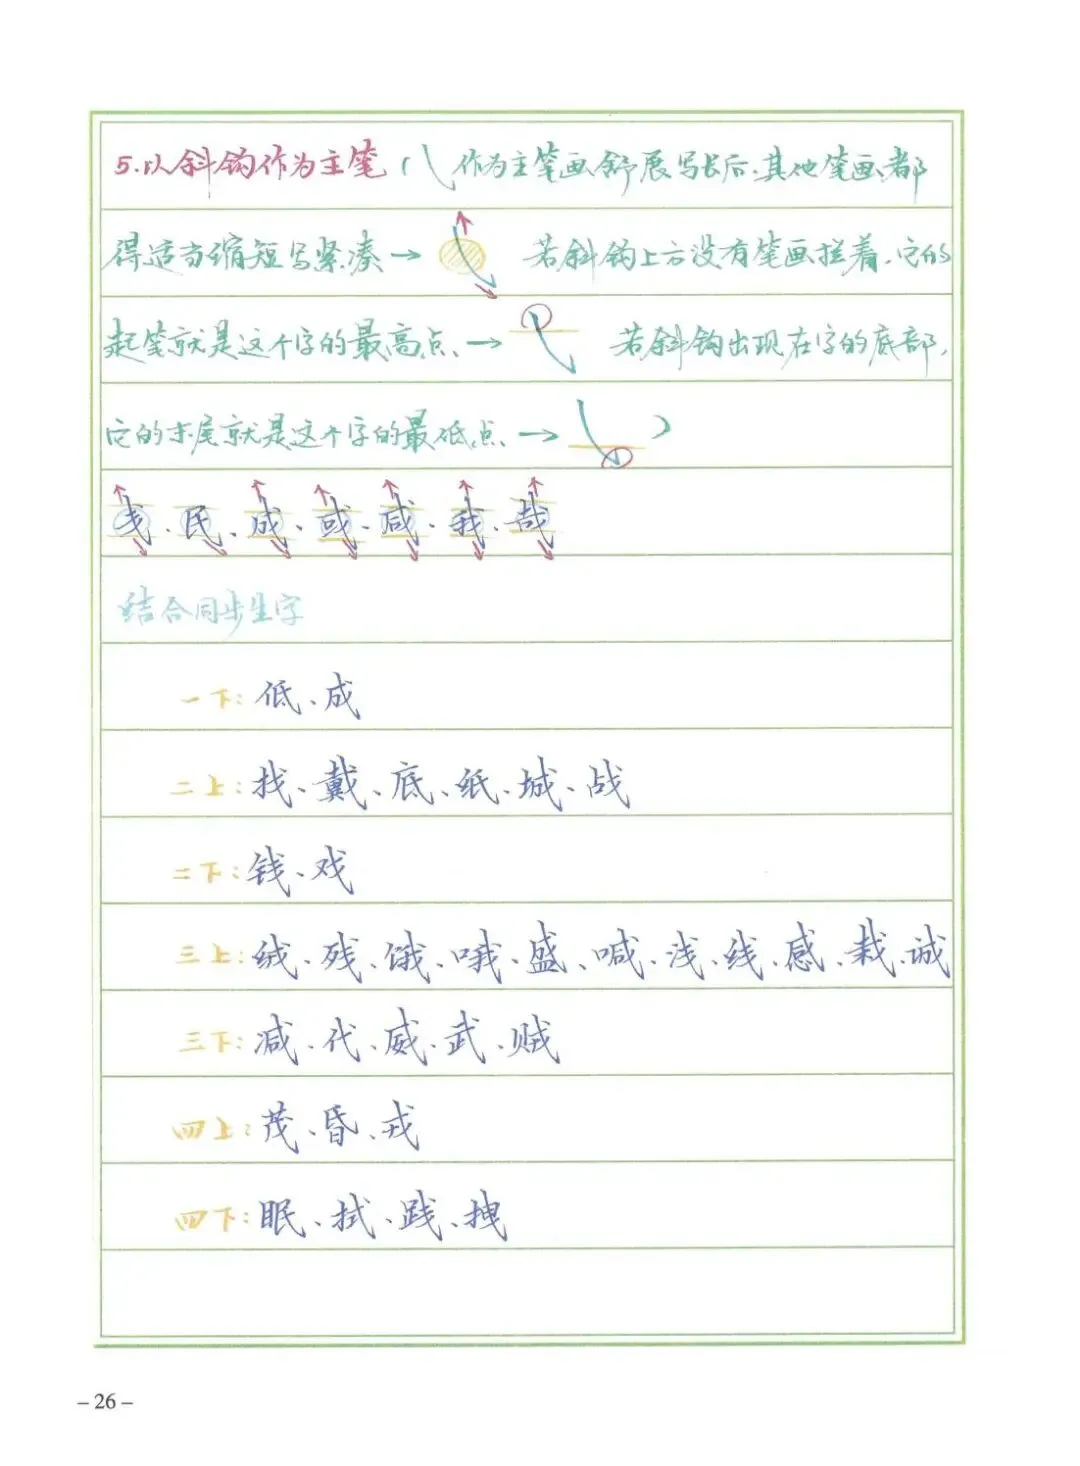 5.以斜钩作为主笔（㇂作为主笔画舒展写长后、其他笔画都
得适当缩短写紧凑→ 若斜钩上方没有笔画拦着,它的
起笔就是这个字的最高点、→ 若斜钩出现在字的底部,
它的末尾就是这个字的最低点、→ ）
戋、民、成、或、咸、我、哉
结合同步生字
一下:低、成
二上:找、戴、底、纸、城、战
二下:钱、戏
三上:绒、残、饿、哦、盛、喊、浅、线、感、栽、诚
三下:减、代、威、武、贼
四上:茂、昏、戎
四下:眠、拭、践、拽
-26-